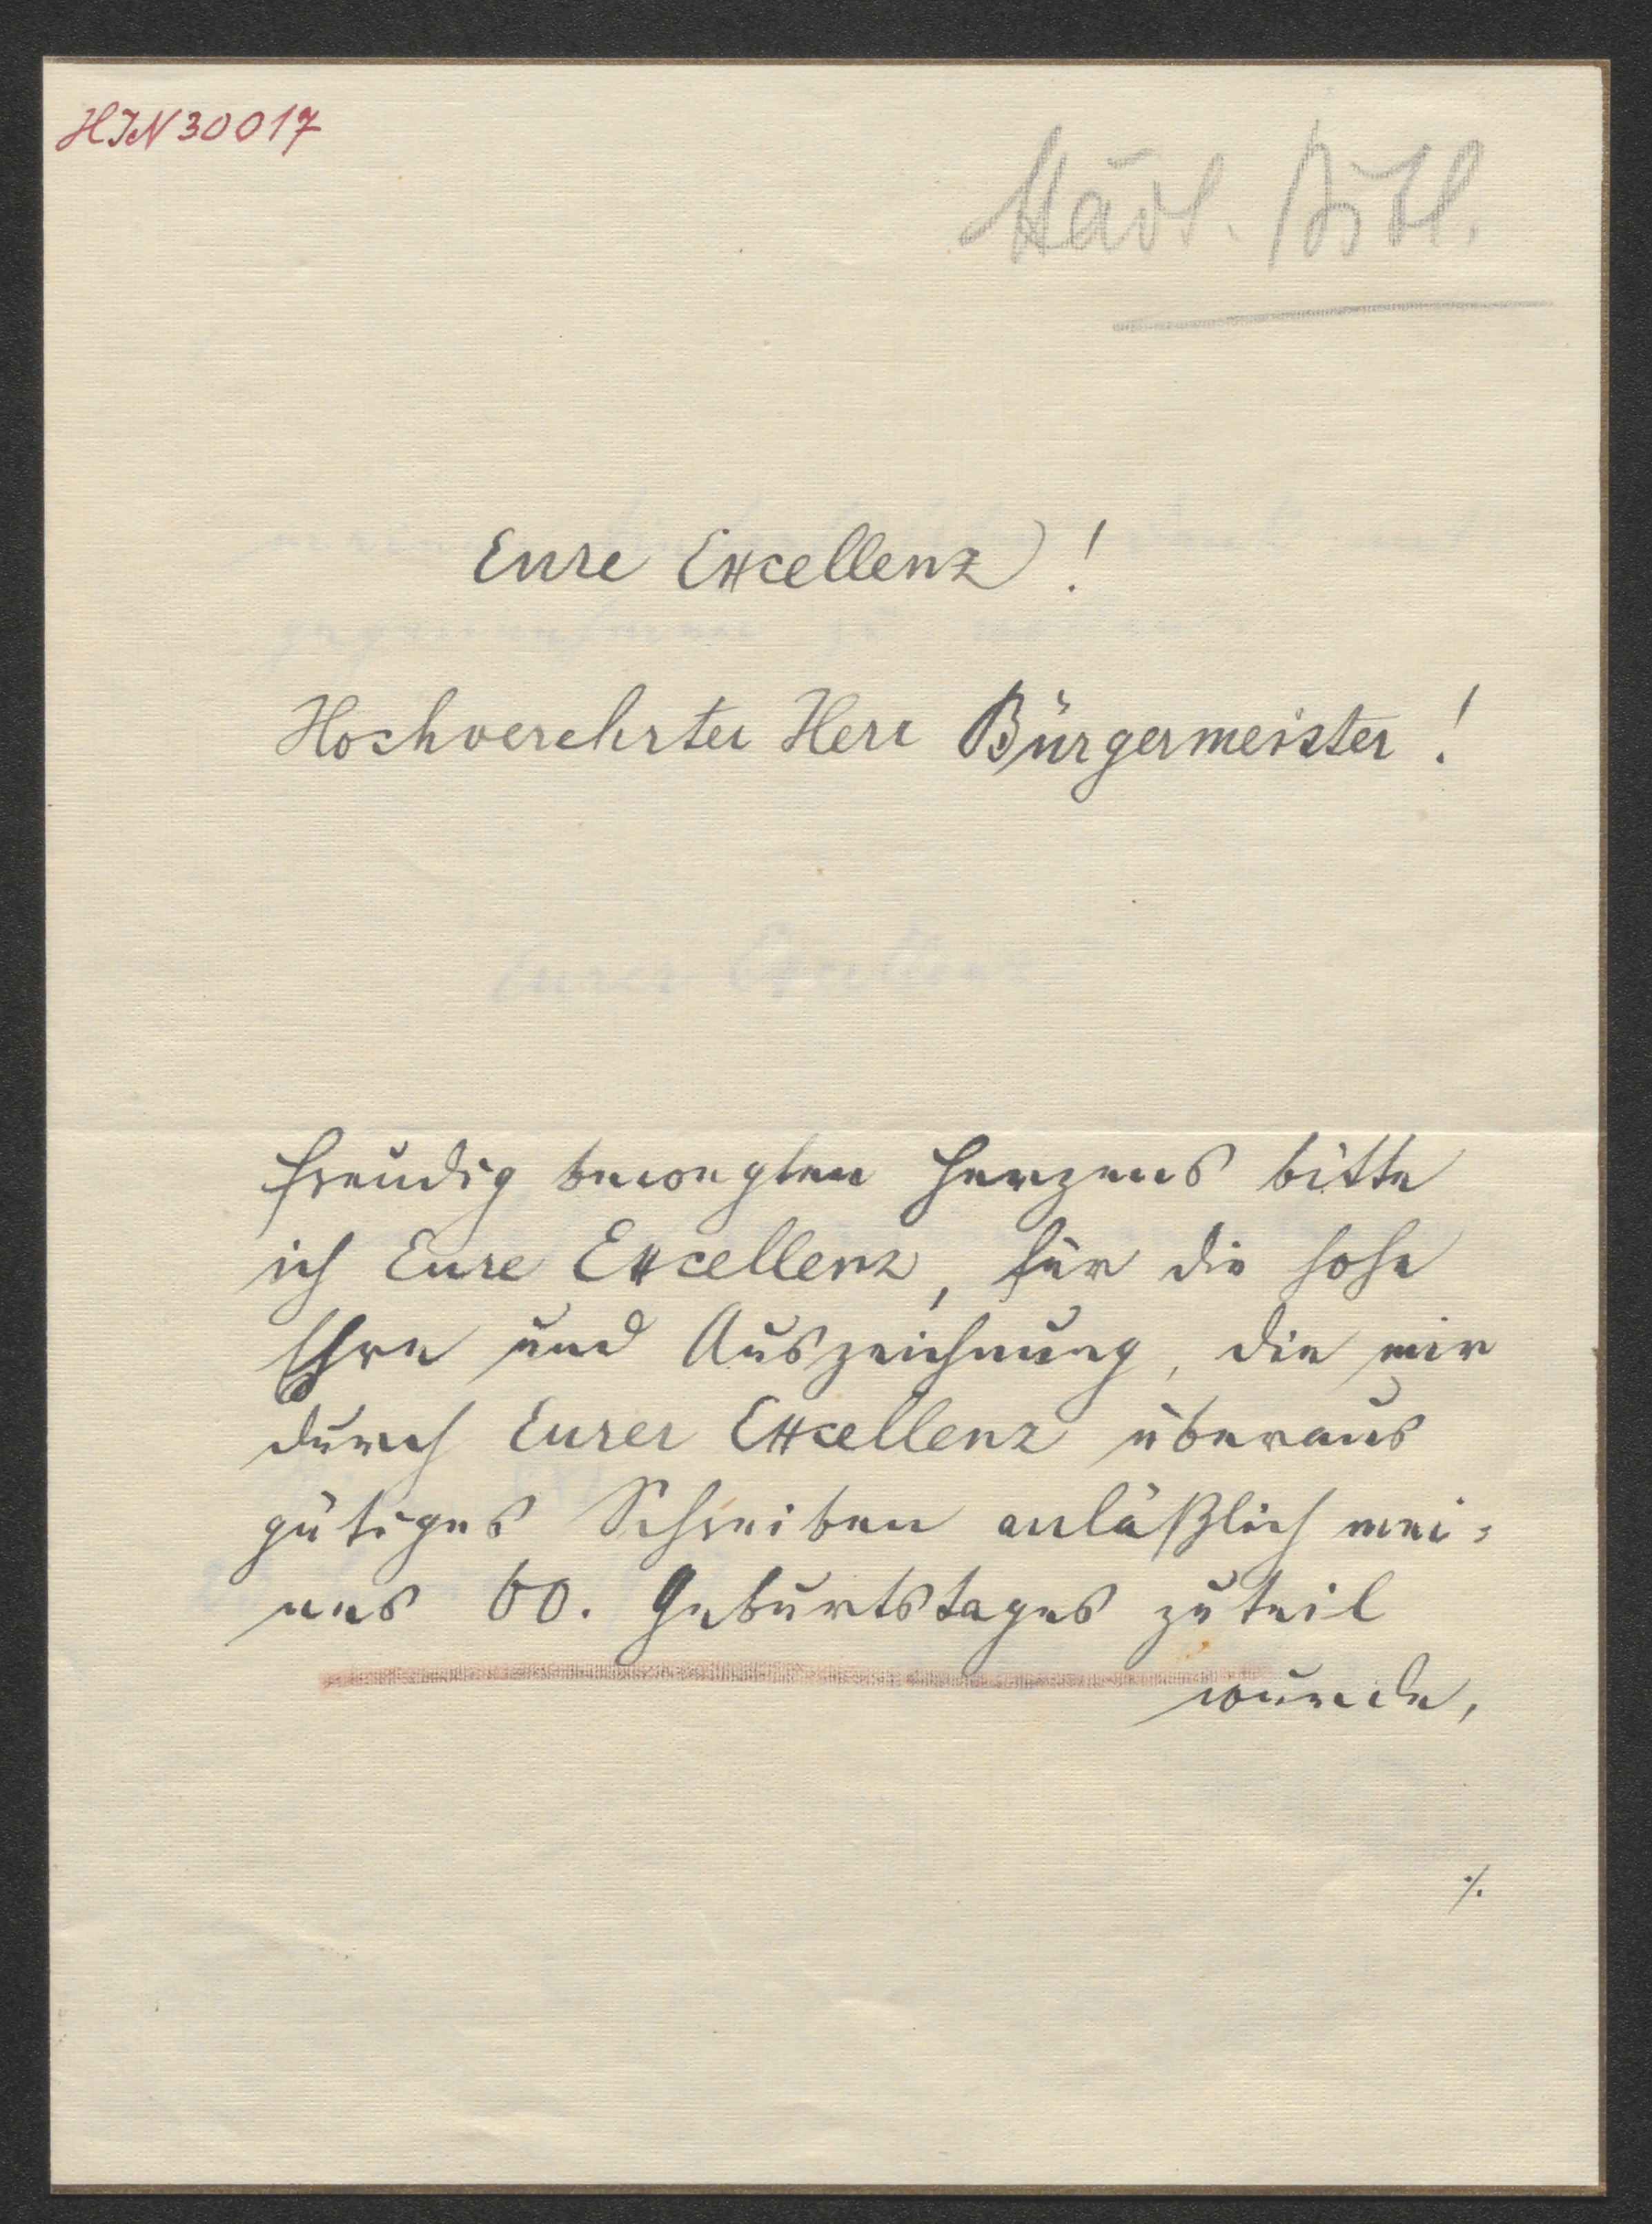 HIN 30017
Städt. Bibl.
Eure Excellenz!
Hochverehrter Herr Bürgermeister!
Freudig bewegten Herzens bitte
ich Eure Excellenz, für die hohe
Ehre und Auszeichnung, die mir
durch Eurer Excellenz überaus
gütiges Schreiben anläßlich mei=
nes 60. Geburtstages zuteil
wurde,
./.